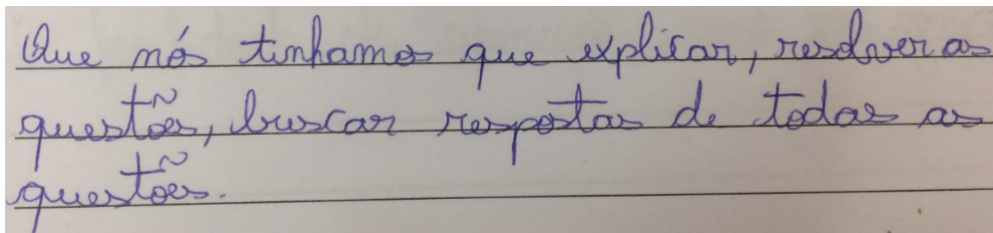 Que nós tinhamos que explicar, resolver as
questões, buscar respostas de todas as
questões.